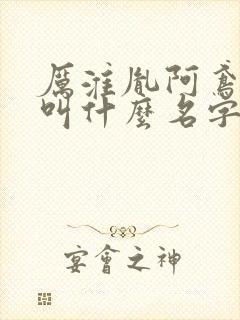 厲漼胤阿鸢
叫什麼名字
宴會之神